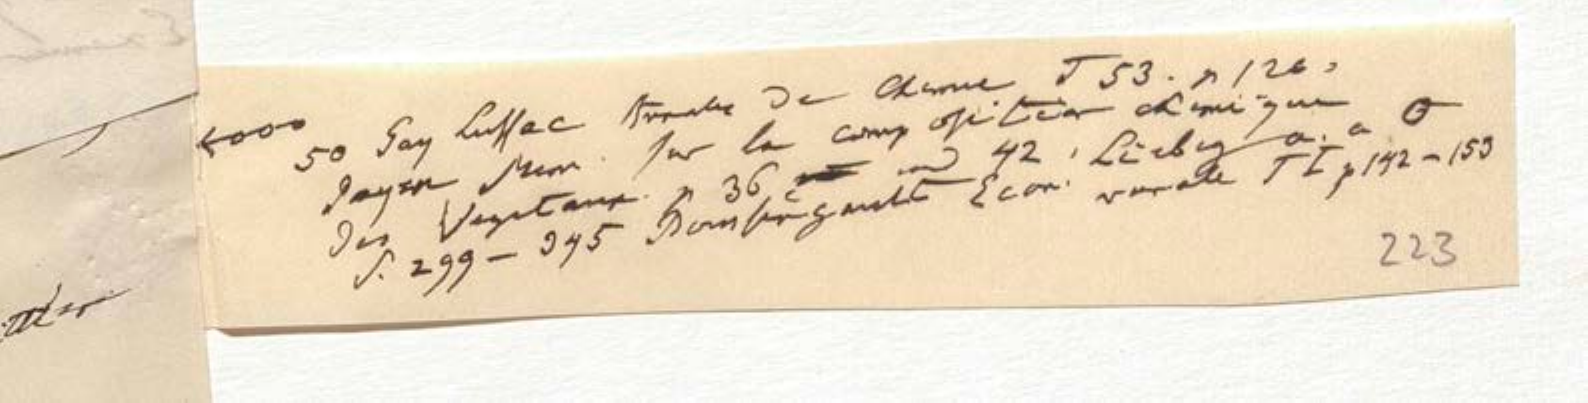 50 Gay Lussac Annales de Chimie T 53. p 126,
Payen Mem. sur la composition chimique
des Vegetaux. p 36 und 42, Liebig a. a O
S. 299 – 345 Boussingault Econ. rurale T I p 142 – 153
223